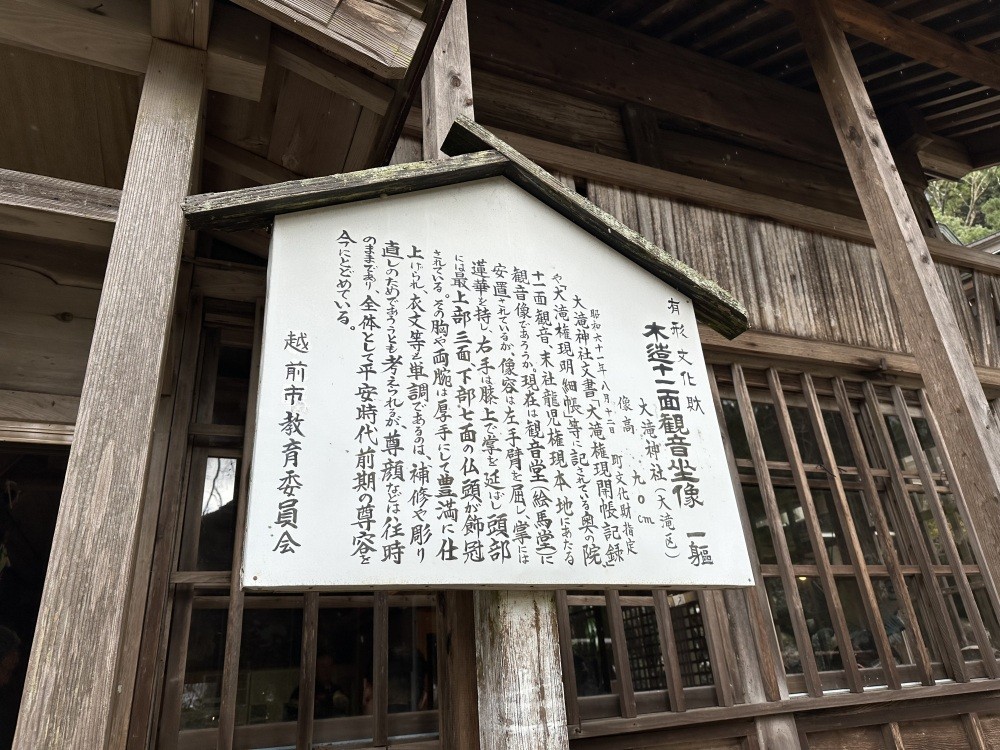 有形文化財
木造十一面観音坐像 一軀
大滝神社(大滝区)
像高 九〇cm
昭和六十一年八月十二日 町文化財指定
大滝神社文書「大滝権現開帳記録」
や「大滝権現明細帳」等に記されている奥の院
十一面観音、末社龍児権現本地にあたる
観音像であろうか。現在は観音堂(絵馬堂)に
安置されているが、像容は左手臂を屈し、掌には
蓮華を持し、右手は膝上で掌を延ばし、頭部
には最上部三面、下部七面の仏頭が飾冠
されている。その胸や両腕は厚手にして豊満に仕
上げられ、衣文等も単調であるのは、補修や彫り
直しのためであろうとも考えられるが、尊顔などは往時
のままであり、全体として平安時代前期の尊容を
今にとどめている。
越前市教育委員会